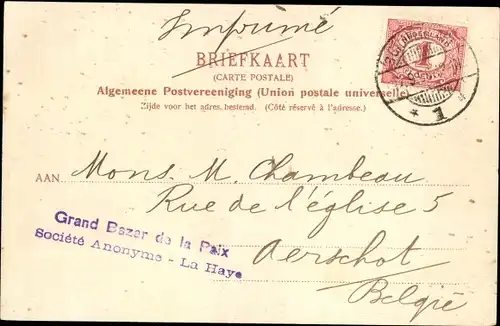 Imprimé
BRIEFKAART
(CARTE POSTALE)
Algemeene Postvereeniging (Union postale universelle)
Zijde voor het adres bestemd. (Côté réservé à l'adresse.)
1
* 1
AAN
Mons. M. Chambeau
Rue de l'église 5
Aerschot
België
Grand Bazar de la Paix
Société Anonyme - La Haye